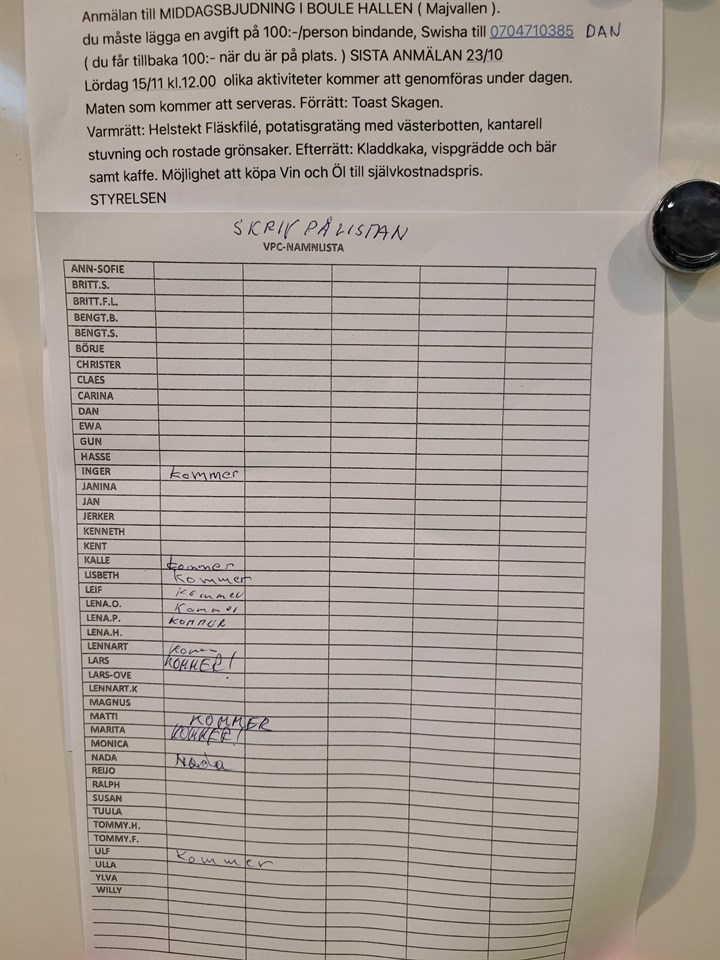 Anmälan till MIDDAGSBJUDNING I BOULE HALLEN ( Majvallen ).
du måste lägga en avgift på 100:-/person bindande, Swisha till 0704710385 DAN
( du får tillbaka 100:- när du är på plats. ) SISTA ANMÄLAN 23/10
Lördag 15/11 kl.12.00 olika aktiviteter kommer att genomföras under dagen.
Maten som kommer att serveras. Förrätt: Toast Skagen.
Varmrätt: Helstekt Fläskfilé, potatisgratäng med västerbotten, kantarell
stuvning och rostade grönsaker. Efterrätt: Kladdkaka, vispgrädde och bär
samt kaffe. Möjlighet att köpa Vin och Öl till självkostnadspris.
STYRELSEN
SKRIV PÅ LISTAN
VPC-NAMNLISTA
ANN-SOFIE
BRITT.S.
BRITT.F.L.
BENGT.B.
BENGT.S.
BÖRJE
CHRISTER
CLAES
CARINA
DAN
EWA
GUN
HASSE
INGER kommer
JANINA
JAN
JERKER
KENNETH
KENT
KALLE kommer
LISBETH kommer
LEIF kommer
LENA.O. Kommer
LENA.P. KOMMER
LENA.H.
LENNART
LARS KOMMER!
LARS-OVE
LENNART.K
MAGNUS
MATTI KOMMER
MARITA KOMMER!
MONICA
NADA Nada
REIJO
RALPH
SUSAN
TUULA
TOMMY.H.
TOMMY.F.
ULF Kommer
ULLA
YLVA
WILLY